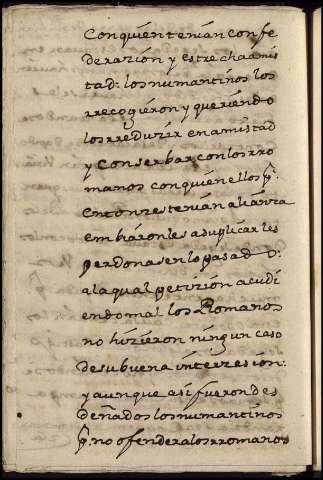 Conquien tenian confe
derazion y estrecha amis
tad: los numantinos los
rrecogieron y queriendo
los rreduzir en amistad
y conserbar con los rro
manos con quien ellos q̃.
entonzes tenian aliança
embiaronles a suplicar les
perdonasen lo pasado:
a la qual petizion acudi
endo mal los Romanos
no hizieron ningun caso
de su buena interzesion:
y aunque asi fueron des
deñados los numantinos
p̃. no ofender a los rromanos